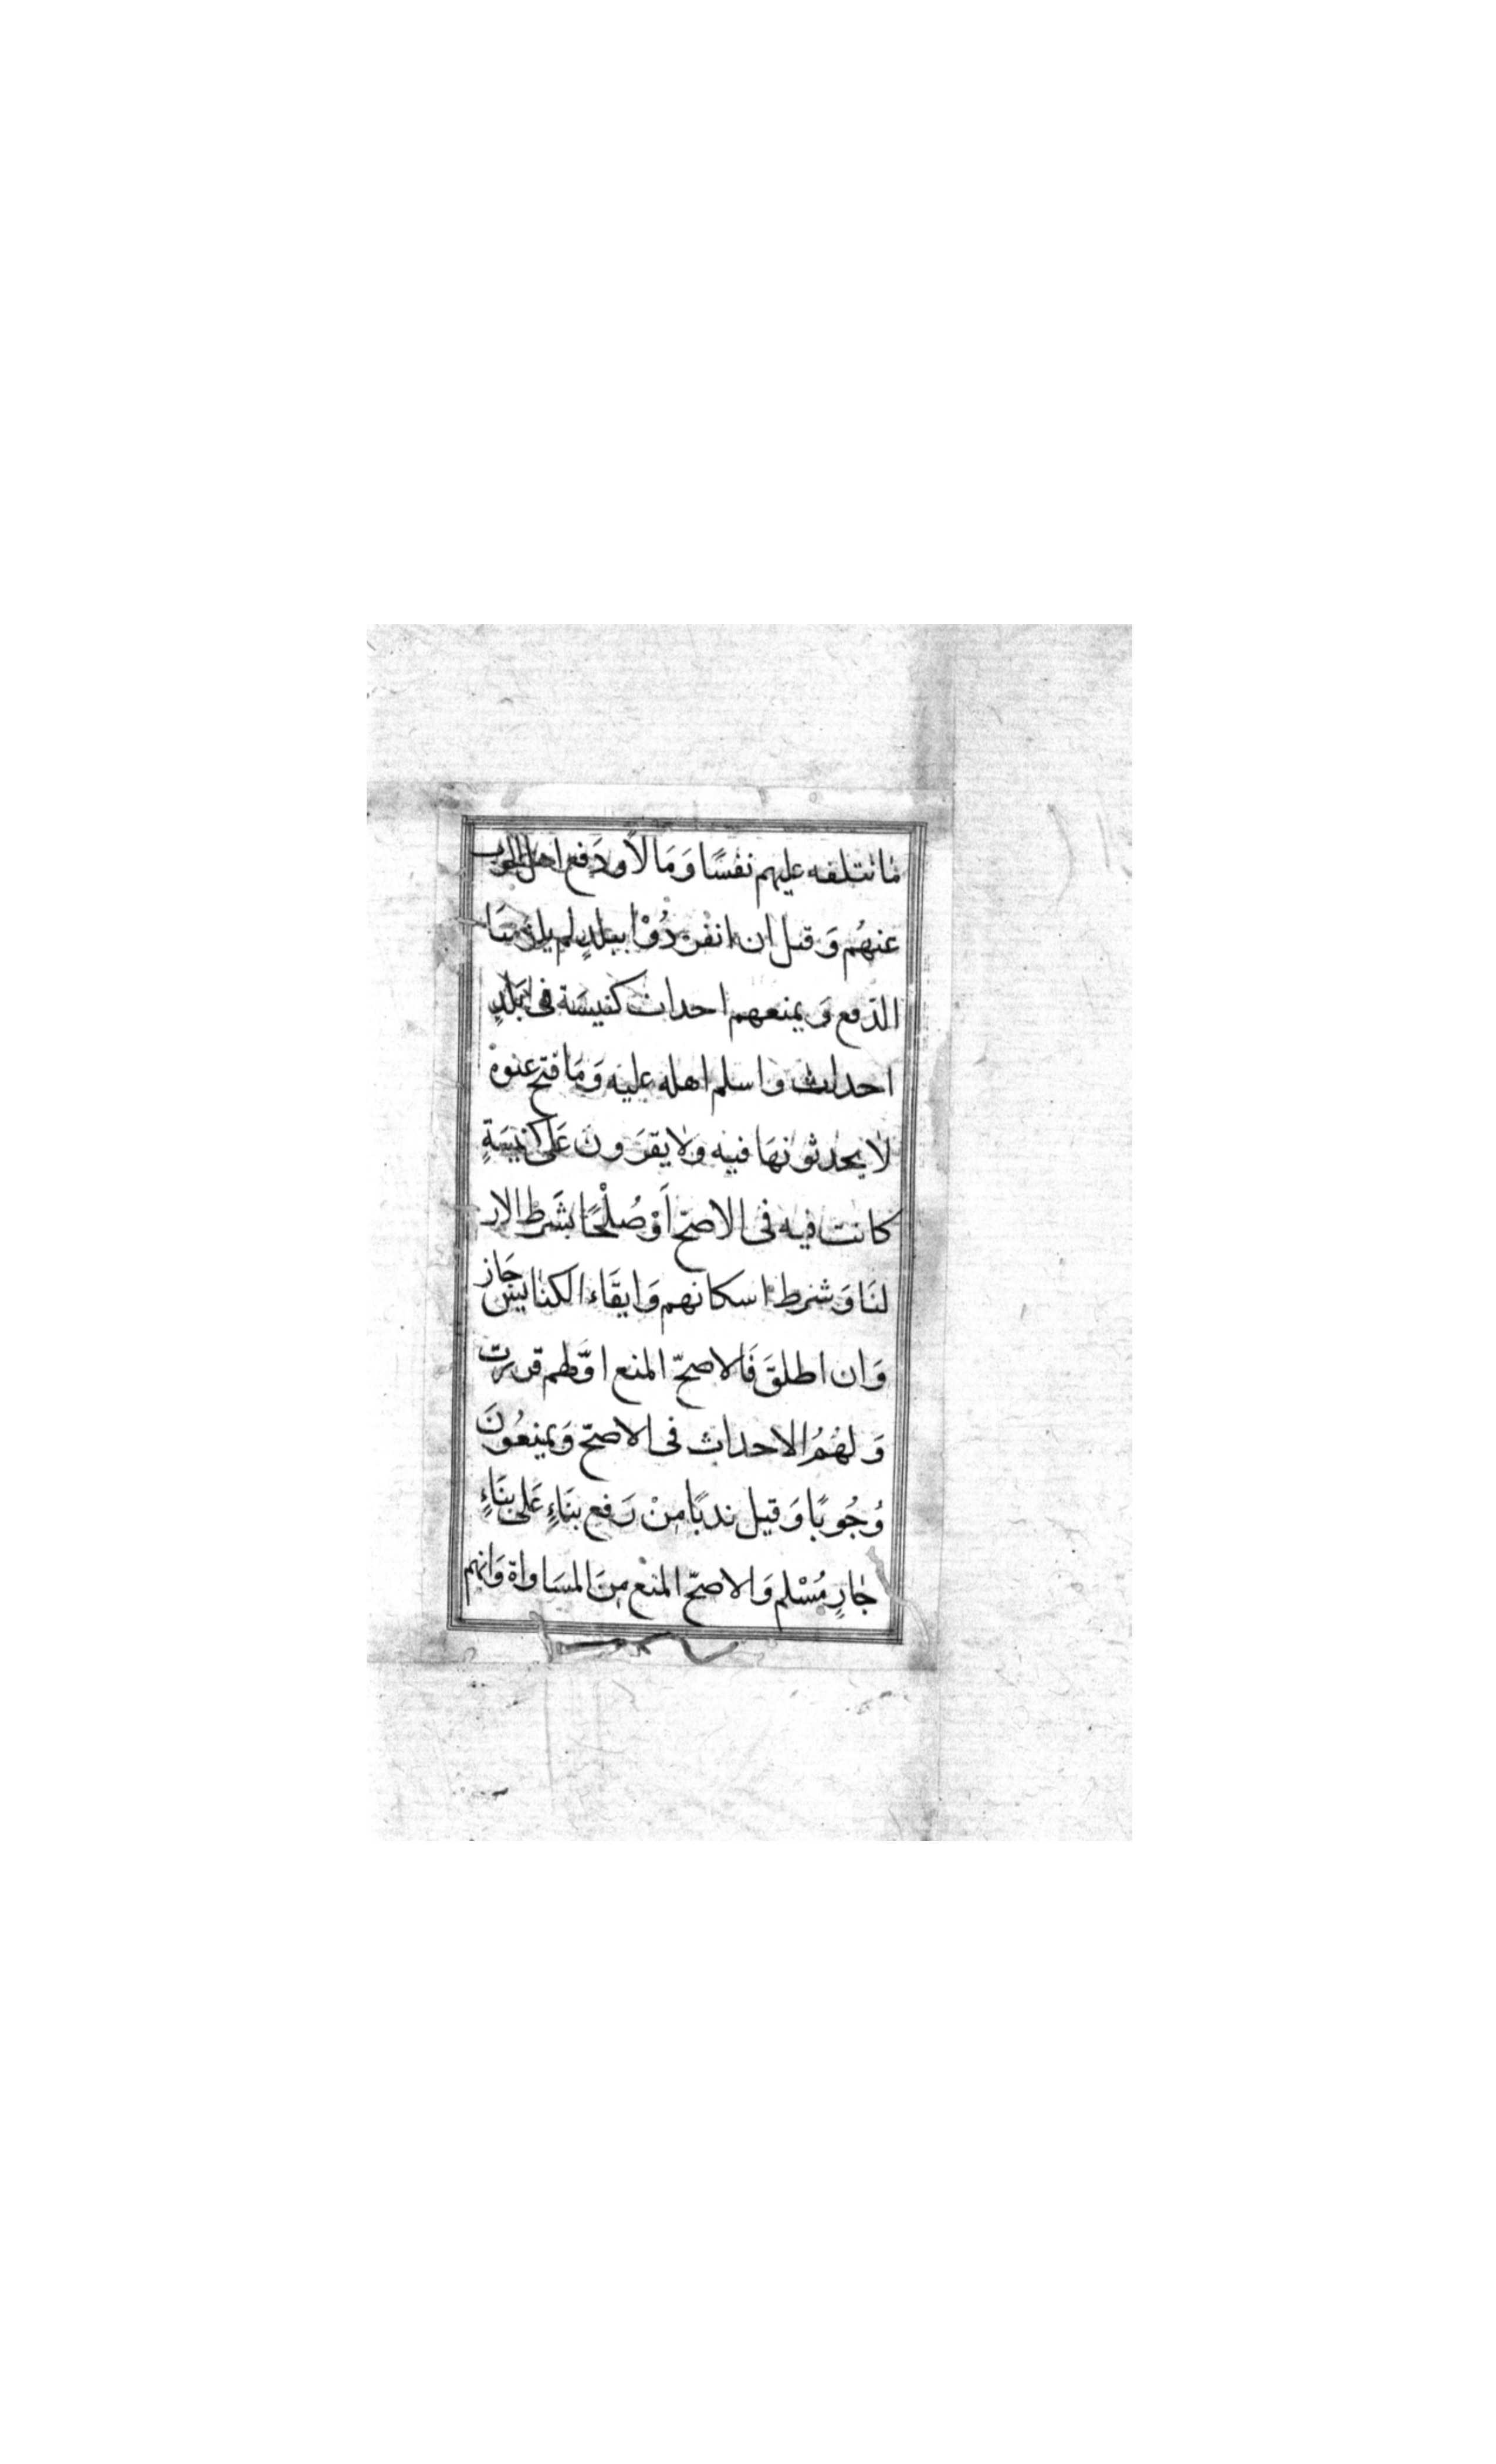 ما نتلفه عليهم نفسًا وَمَالًا ودَفع اهل الحرب
عنهُم وَقيل ان انفردُوْا ببلدٍ لم يلزمنَا
الدّفع وَيمنعهم احداث كنيسَة فى بَلَدٍ
احداث واسلم اهله عليه وَمَا فتح عنوة
لا يحدثونهَا فيه ولا يقرَون عَلى كنيسَةٍ
كانت فيه فى الاصحّ اَوْ صُلْحًا بشَرط الار
لنَا وَشرط اسكانهم وَابقَاء الكنايس جَاز
وَان اطلقَ فَالاصحّ المنع اوَّلهم قررت
وَلهُمُ الاحداث فى الاصحّ وَيمنعُونَ
وُجُوبًا وَقيل ندبًا مِنْ رَفع بنَاءٍ عَلى بنَاءٍ
جارٍ مُسْلم وَالاصحّ المنْع مِنَ المسَاواة وَانهم